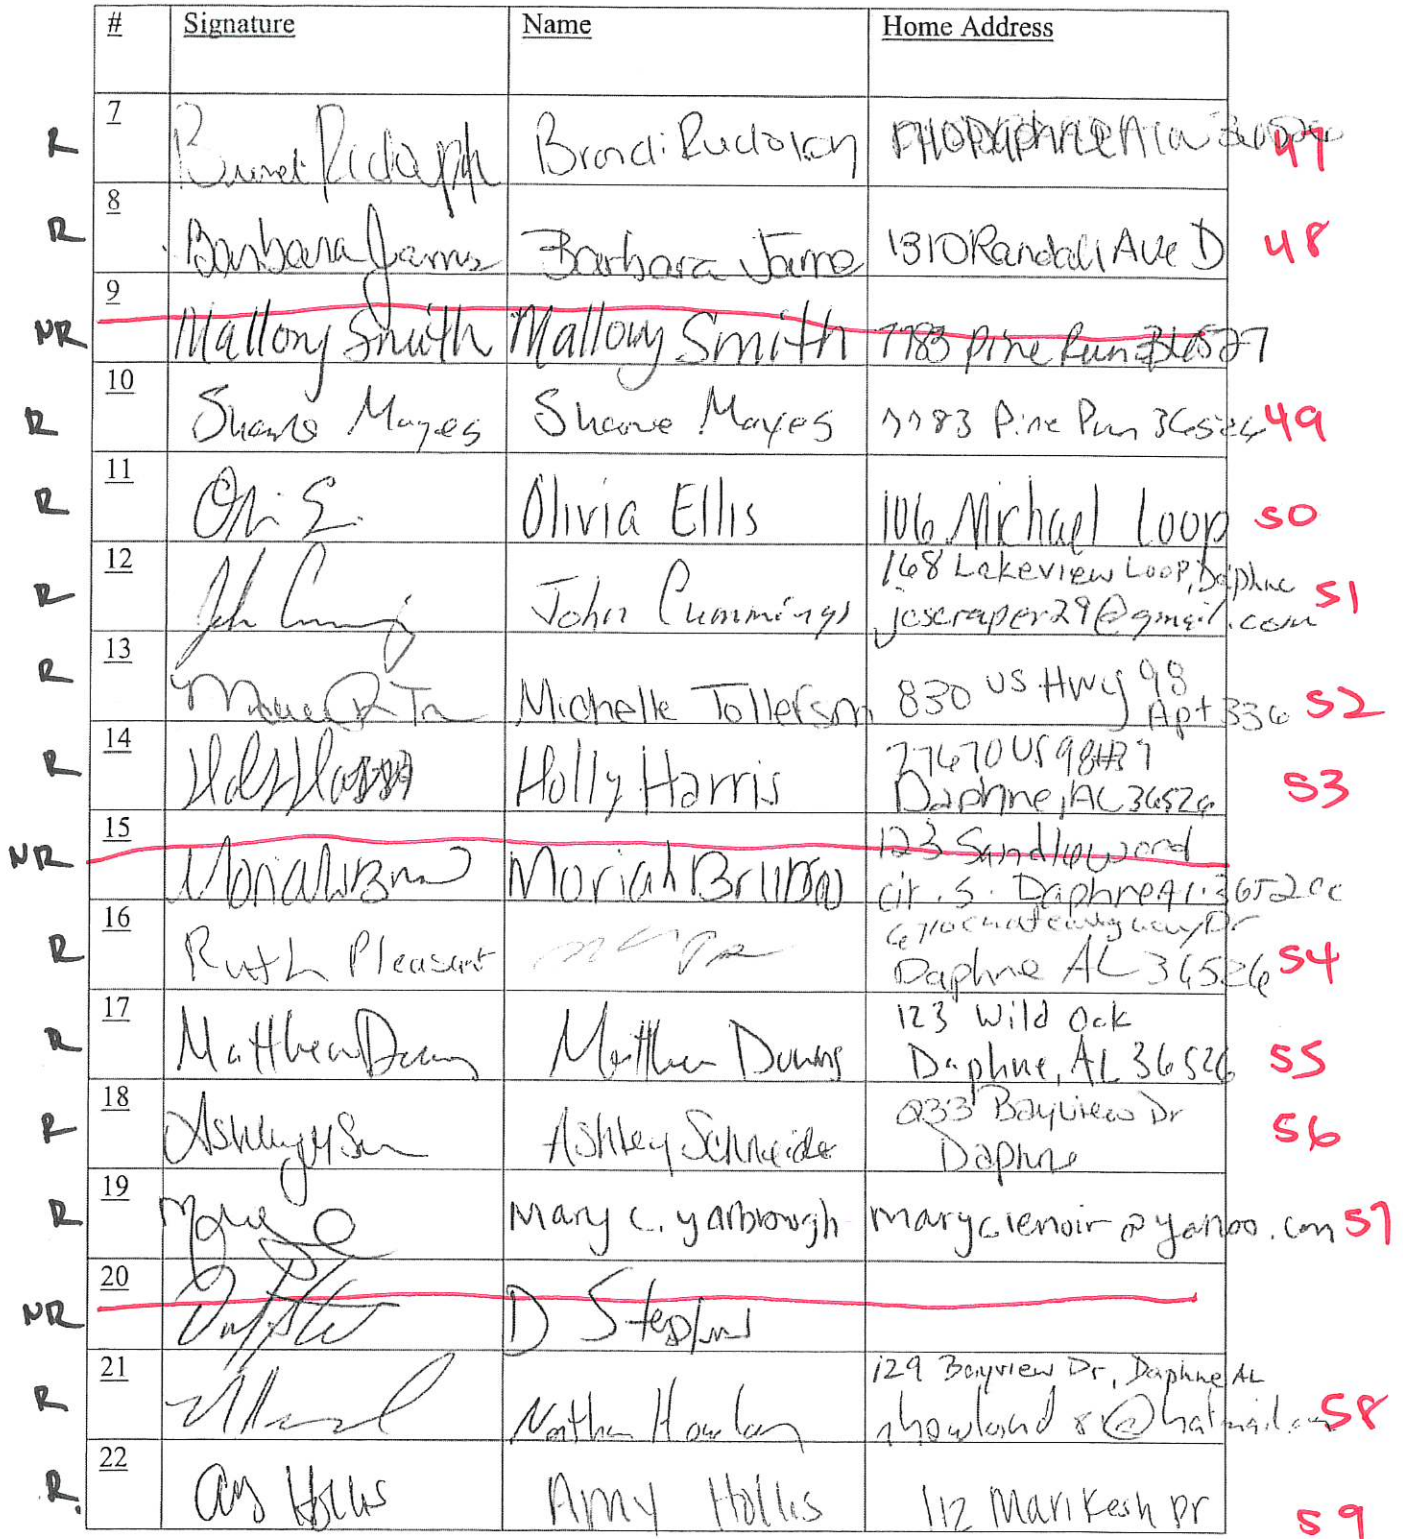 # Signature Name Home Address
R 7 Rudolph Brandi Rudolph 47
R 8 Barbara James Barbara Jame 1310 Randall Ave D 48
NR 9 Mallory Smith Mallory Smith 7783 Pine Run 36527
R 10 Shane Mayes Shane Mayes 7783 Pine Run 36526 49
R 11 Olivia Ellis 106 Michael Loop 50
168 Lakeview Loop, Daphne
R 12 John Cummings jcscraper29@gmail.com 51
R 13 Michelle Tollefson 830 US Hwy 98
Apt 336 52
R 14 Holly Harris 27670 US 98 #
Daphne, AL 36526 53
NR 15 Moriah 123 Sandlewood
Cir. S. Daphne Al. 36526
R 16 Ruth Pleasant Dr
Daphne AL 36526 54
R 17 Matthew Downs Matthew Downs 123 Wild Oak
Daphne, AL 36526 55
R 18 Ashley Ashley Schneider 233 Bayview Dr
Daphne 56
R 19 Mary C. Yarbrough maryclenoir@yahoo.com 57
NR 20 D Stephens
R 21 129 Bayview Dr, Daphne AL
Nathan Howland nhowland8@hotmail.com 58
R. 22 Amy Hollis Amy Hollis 112 Marikesh Dr 59